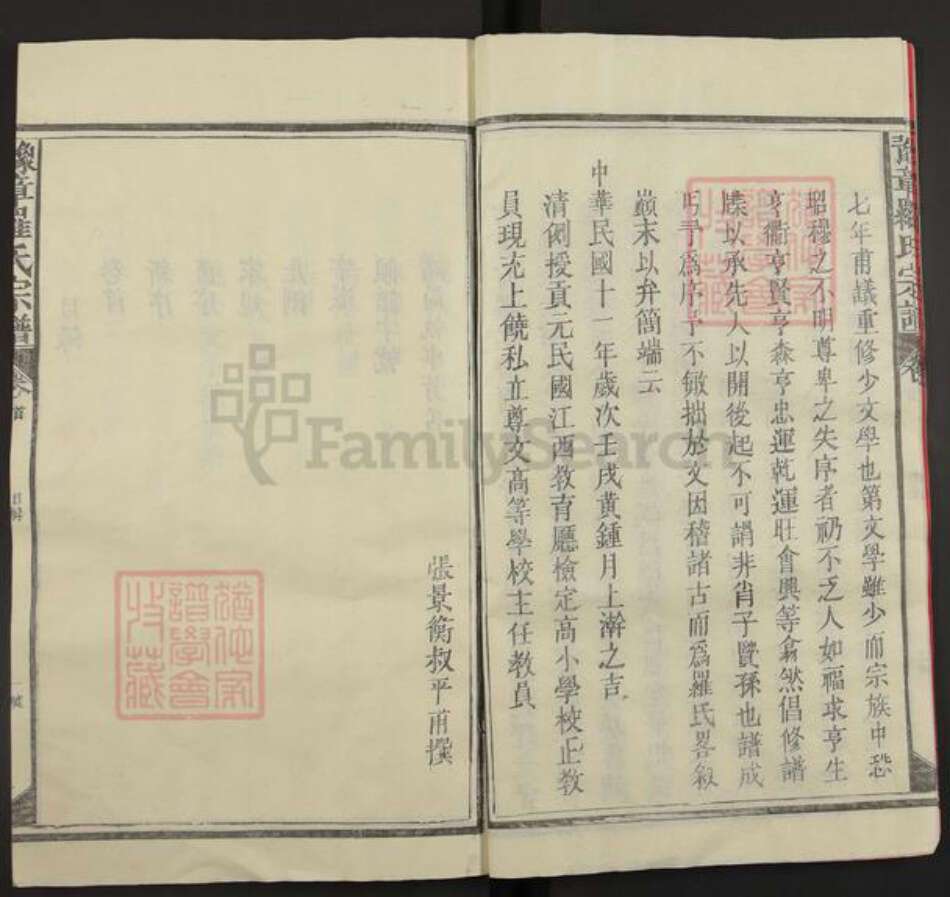 豫章羅氏宗譜
七年甫議重修少文學也第文學雖少而宗族中恐
昭穆之不明尊卑之失序者礽不乏人如福求亨生
亨衢亨賢亨森亨忠運乾運旺會興等翕然倡修譜
牒以承先人以開後起不可謂非肖子賢孫也譜成
丐予為序予不敏拙於文因稽諸古而為羅氏畧叙
巔末以弁簡端云
中華民國十一年歲次壬戌黃鍾月上澣之吉
清例授貢元民國江西教育廳檢定高小學校正教
員現充上饒私立尊文高等學校主任教員
張景衡叔平甫撰
豫章羅氏宗譜
卷首
FamilySearch
譜學會
收藏